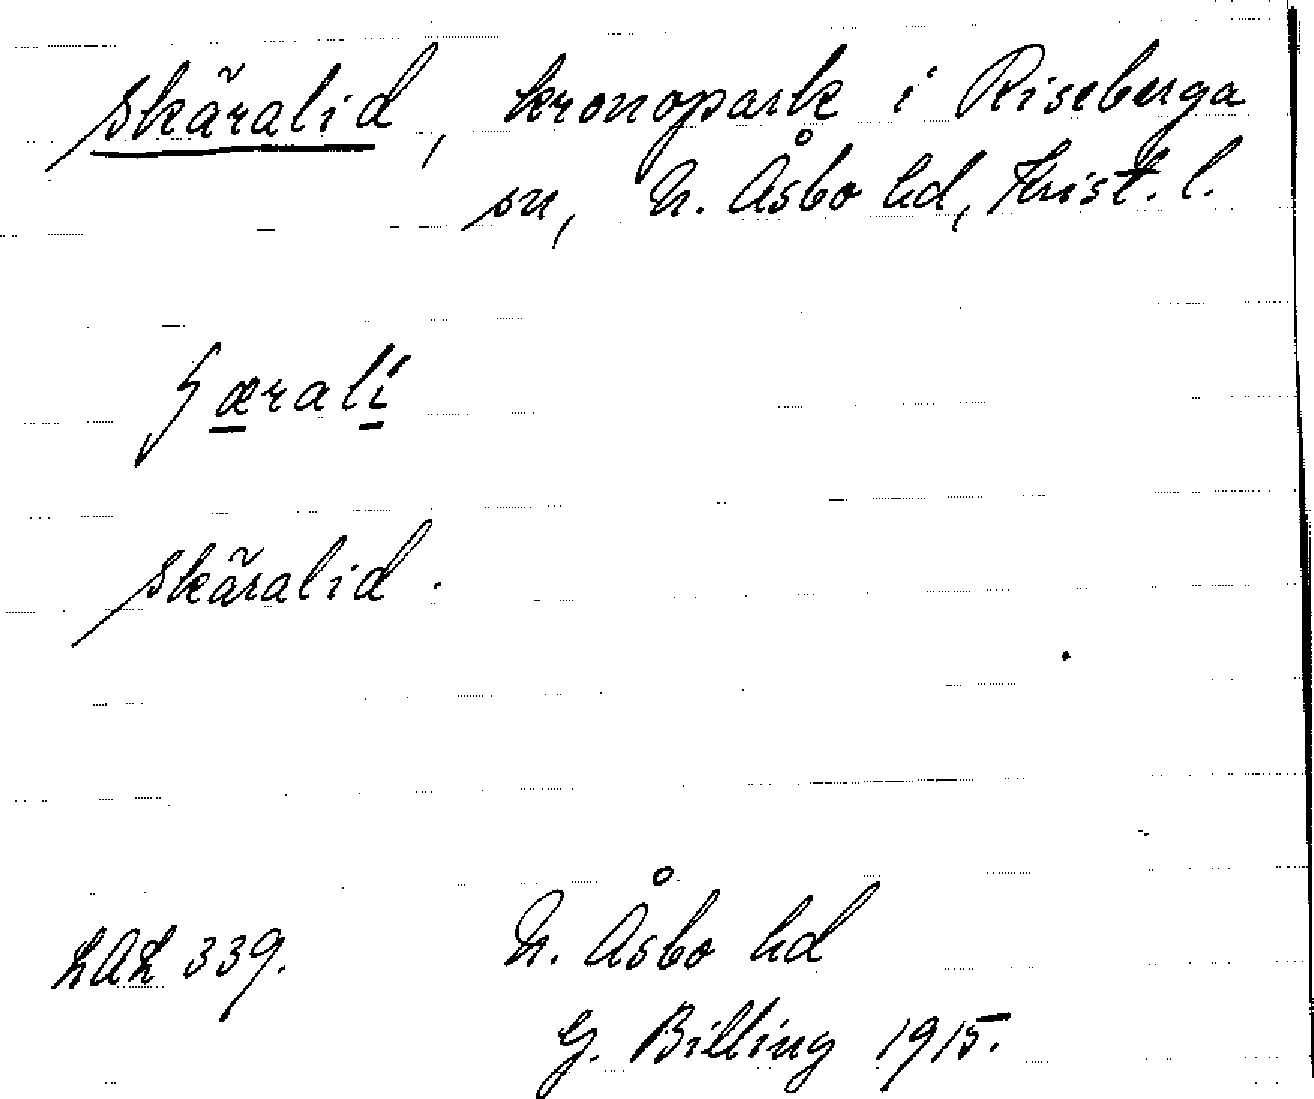 Skäralid, kronopark i Riseberga
sn, N. Åsbo hd, Krist. l.
ʃæralí
Skäralid.
LAL 339.
N. Åsbo hd
G. Billing 1915.